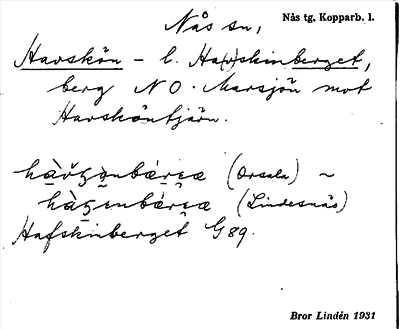 Nås sn,
Nås tg, Kopparb. l.
Havskön – l. Ha(v)skinberget,
berg NO. Marsjön mot
Havsköntjärn.
(Orsala) ~
(Lindesnäs)
Hafskinberget G89.
Bror Lindén 1931